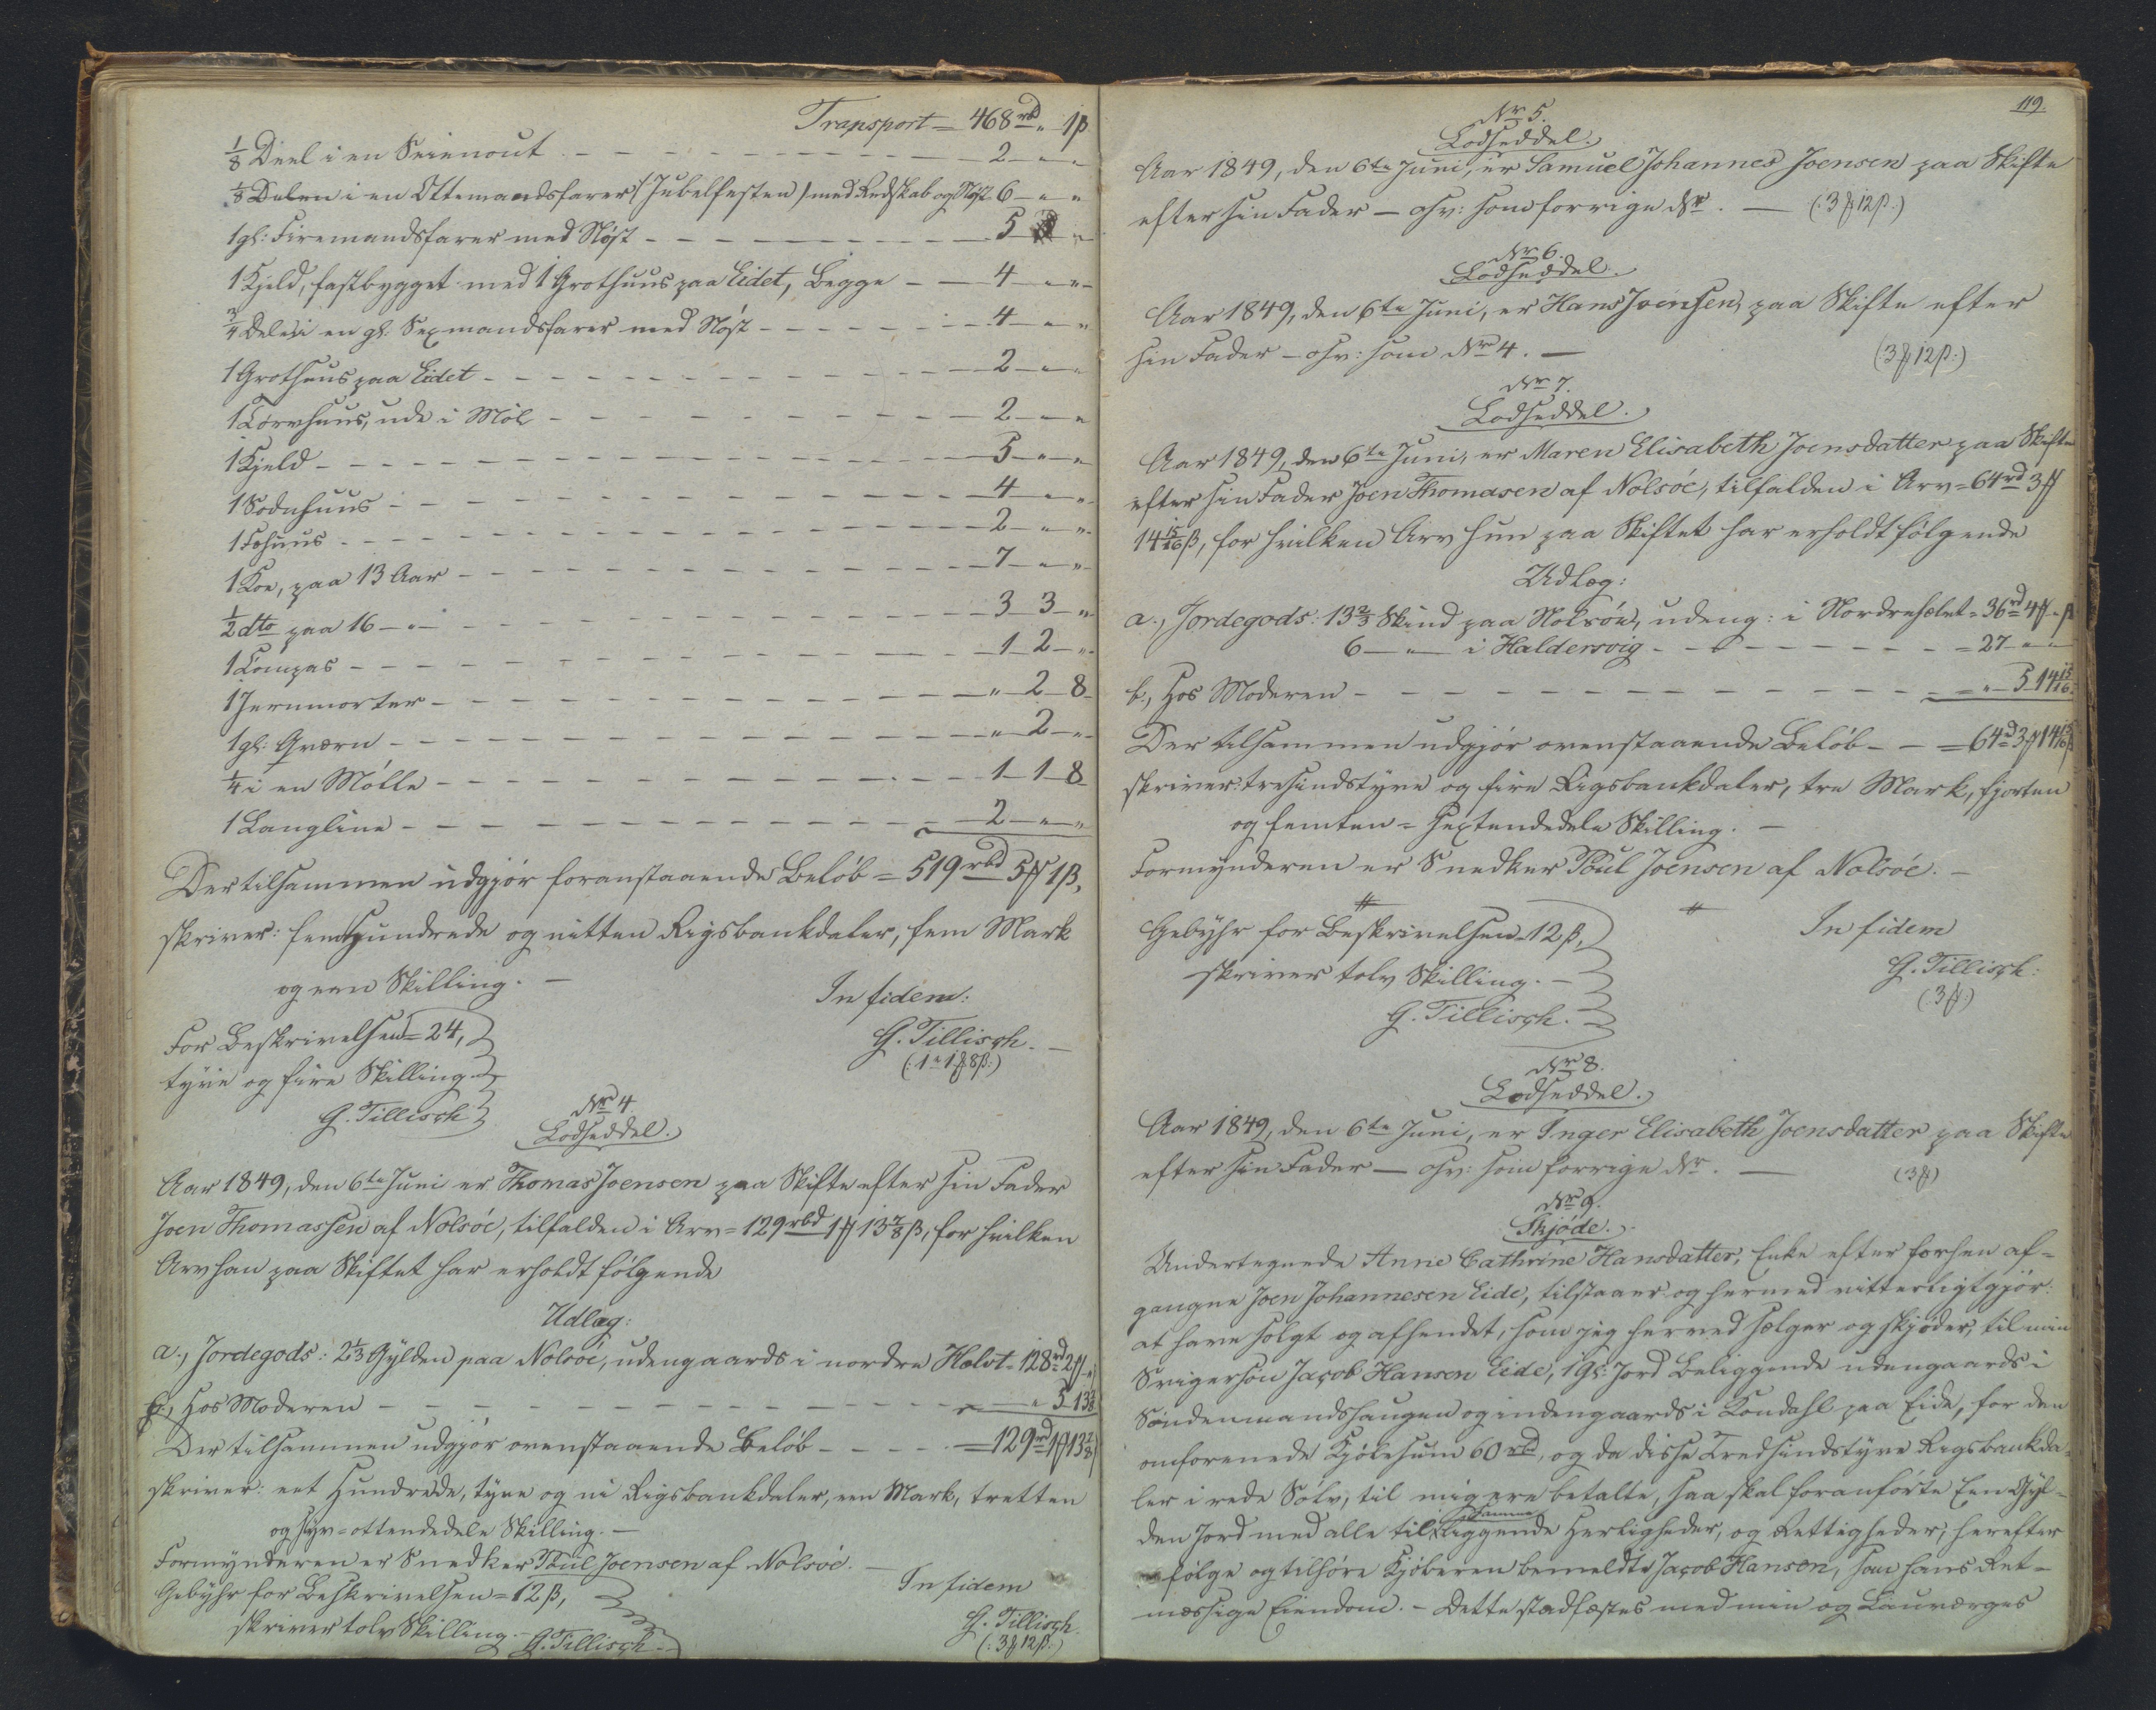 Transport = 468 rbd " 1 β
1/8 Deel i en Seienout - - - 2 - " - "
1/8 Delen i en Ottemandsfarer (Jubelfesten) med Redskab og Nøst 6 - " - "
1 gl: Firemandsfarer med Nøst - - - 5 - "
1 Kjeld, fastbygget med 1 Grothuus paa Eidet, Begge - - 4 - " - "
3/4 Dele i en gl. Sexmandsfarer med Nøst - - - 4 - " - "
1 Grothuus paa Eidet - - - 2 - " - "
1 Tørvhuus, ude i Møl - - - 2 - " - "
1 Kjeld - - - 5 - " - "
1 Sodnhuus - - - 4 - " - "
1 Fæhuus - - - 2 - " - "
1 Koe, paa 13 Aar - - - 7 - " - "
1/2 dto paa 16 - " - - - 3 - 3 - "
1 Compas - - - 1 - 2 - "
1 Jernmorter - - - " - 2 - 8
1 gl: Qværn - - - " - 2 - "
1/4 i en Mølle - - - 1 - 1 - 8
1 Langline - - - 2 - " - "
Der tilsammen udgjør foranstaaende Beløb = 519 rbd 5 ℔ 1 β,
skriver: fem Hundrede og nitten Rigsbankdaler, fem Mark
og een Skilling. -
In fidem:
For Beskrivelsen = 24,
G. Tillisch. -
tyve og fire Skilling.
(: 1 " 1 ℔ 8 β :)
G. Tillisch
Nr 4
Lodseddel.
Aar 1849, den 6te Juni er Thomas Joensen paa Skifte efter sin Fader
Joen Thomassen af Nolsöe, tilfalden i Arv = 129 rbd 1 ℔ 13 7/8 β, for hvilken
Arv han paa Skiftet har erholdt følgende
Udlæg:
a., Jordegods: 2 1/3 Gylden paa Nolsöe, udengaards i nordre Halvt = 128 rd 2 ℔ "
b., Hos Moderen - - - " 5 13 7/8
Der tilsammen udgjør ovenstaaende Beløb - - - = 129 rd 1 ℔ 13 7/8 β
skriver: eet Hundrede, tyve og ni Rigsbankdaler, een Mark, tretten
og syv = ottendedele Skilling. -
Formynderen er Snedker Poul Joensen af Nolsöe. -
Gebyhr for Beskrivelsen = 12 β,
In fidem
skriver tolv Skilling. - G. Tillisch.
G. Tillisch.
(: 3 ℔ 12 β :)
119.
Nr 5.
Lodseddel.
Aar 1849, den 6te Juni, er Samuel Johannes Joensen paa Skifte
efter sin Fader - osv: som forrige Nr. - (: 3 ℔ 12 β :)
Nr 6.
Lodseddel.
Aar 1849, den 6te Juni, er Hans Joensen, paa Skifte efter
sin Fader - osv: som Nr 4. - (: 3 ℔ 12 β :)
Nr 7.
Lodseddel.
Aar 1849, den 6te Juni, er Maren Elisabeth Joensdatter paa Skifte
efter sin Fader Joen Thomasen af Nolsöe, tilfalden i Arv = 64 rd 3 ℔
14 15/16 β, for hvilken Arv hun paa Skiftet har erholdt følgende
Udlæg:
a., Jordegods: 13 2/3 Skind paa Nolsöe, udeng: i Nordrehalvt = 36 rd 4 ℔ " β
6 - " - i Haldersvig - - - = 27 - " - "
b., Hos Moderen - - - = " - 5 14 15/16
Der tilsammen udgjør ovenstaaende Beløb - - = 64 rd 3 ℔ 14 15/16 β
skriver: tresindstyve og fire Rigsbankdaler, tre Mark, fjorten
og femten = sextendedele Skilling. -
Formynderen er Snedker Poul Joensen af Nolsöe. -
Gebyhr for Beskrivelsen = 12 β,
In fidem
skriver tolv Skilling. -
G. Tillisch:
G. Tillisch.
(: 3 ℔ :)
Nr 8.
Lodseddel.
Aar 1849, den 6te Juni, er Inger Elisabeth Joensdatter paa Skifte
efter sin Fader - osv: som forrige Nr. - (3 ℔)
Nr 9.
Skjøde.
Undertegnede Anne Cathrine Hansdatter, Enke efter forhen af-
gangne Joen Johannesen Eide, tilstaaer og hermed vitterligtgjør:
at have solgt og afhendet, som jeg herved sælger og skjøder, til min
Svigersøn Jacob Hansen Eide, 1 Gl: Jord beliggende udengaards i
Søndenmandshaugen og indengaards i Kondahl paa Eide, for den
omforenede Kjøbesum 60 rbd, og da disse Tredsindstyve Rigsbankda-
ler i rede Sølv, til mig ere betalte, saa skal foranførte Een Gyl-
den Jord med alle til samme liggende Herligheder, og Rettigheder, herefter
følge og tilhøre Kjøberen bemeldte Jacob Hansen, som hans Ret-
mæssige Eiendom. - Dette stadfæstes med min og Lauværges